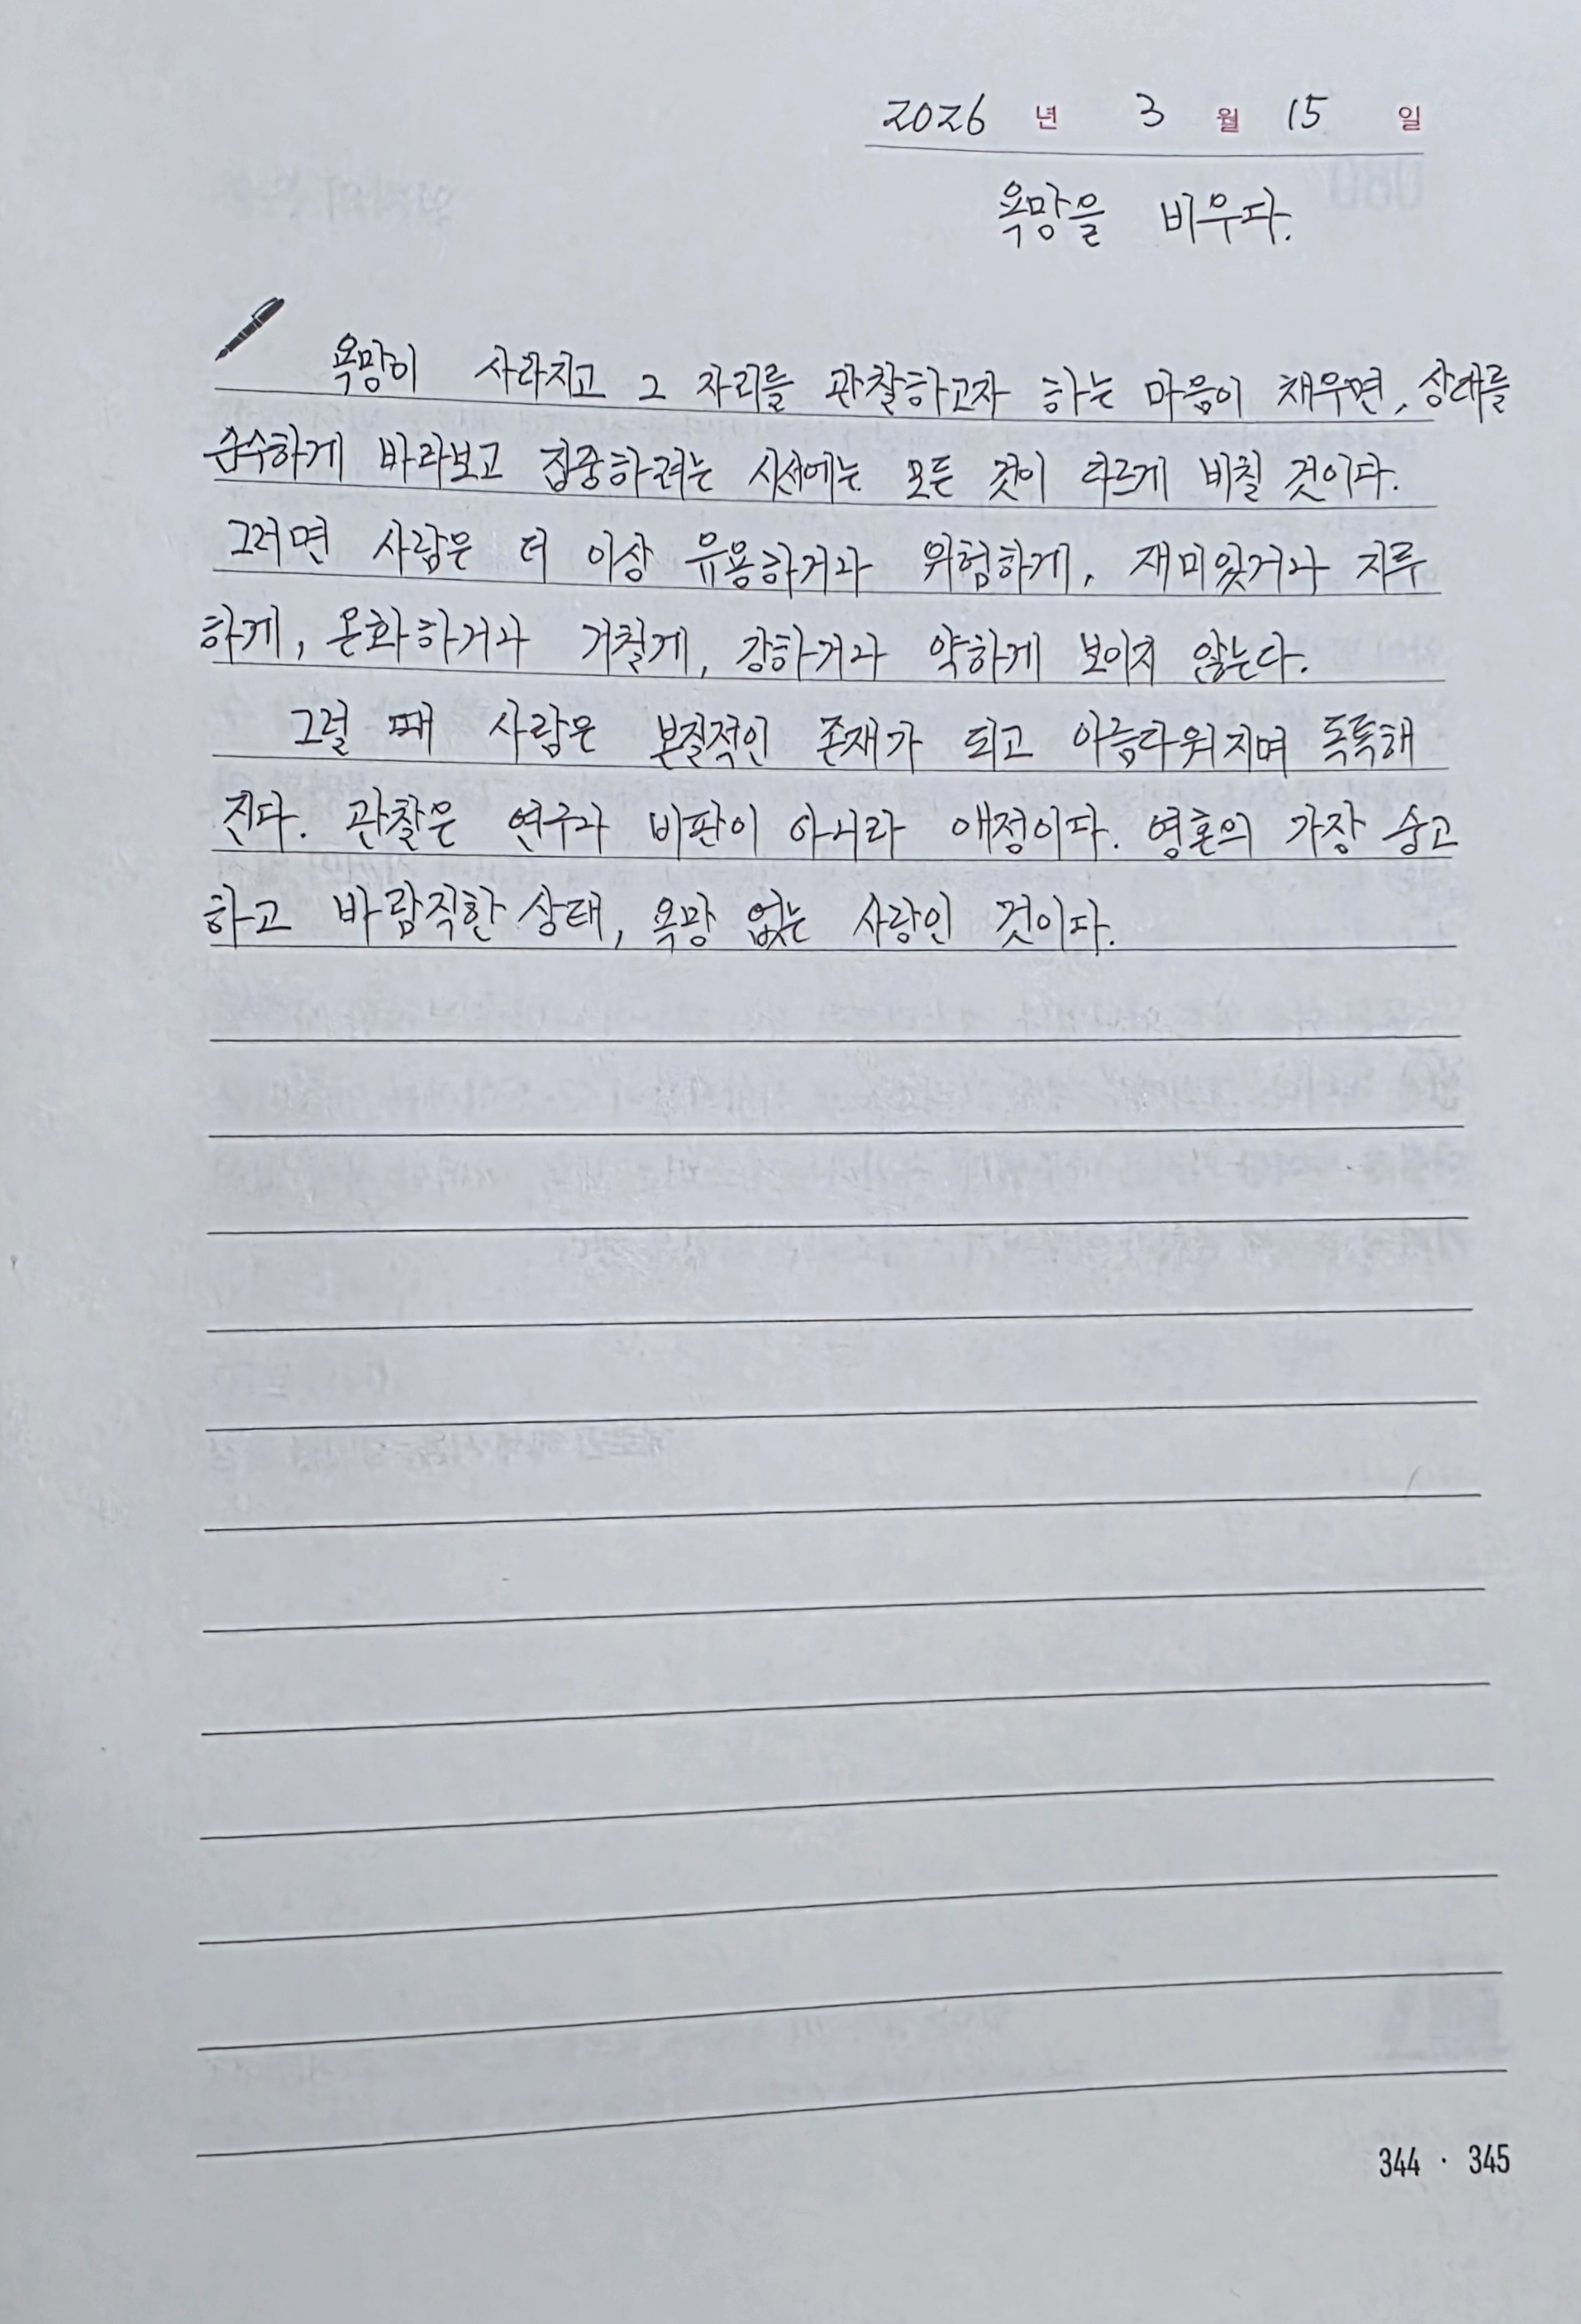 2026 년 3 월 15 일
욕망을 비우다.
욕망이 사라지고 그 자리를 관찰하고자 하는 마음이 채우면, 상대를
순수하게 바라보고 집중하려는 시선에는 모든 것이 다르게 비칠 것이다.
그러면 사람은 더 이상 유용하거나 위험하게, 재미있거나 지루
하게, 온화하거나 거칠게, 강하거나 약하게 보이지 않는다.
그럴 때 사람은 본질적인 존재가 되고 아름다워지며 독특해
진다. 관찰은 연구나 비판이 아니라 애정이다. 영혼의 가장 숭고
하고 바람직한 상태, 욕망 없는 사랑인 것이다.
344 · 345